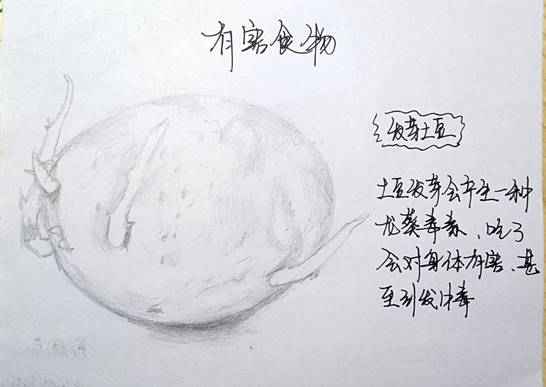 有害食物
发芽土豆
土豆发芽会产生一种
龙葵毒素、吃了
会对身体有害、甚
至引发中毒